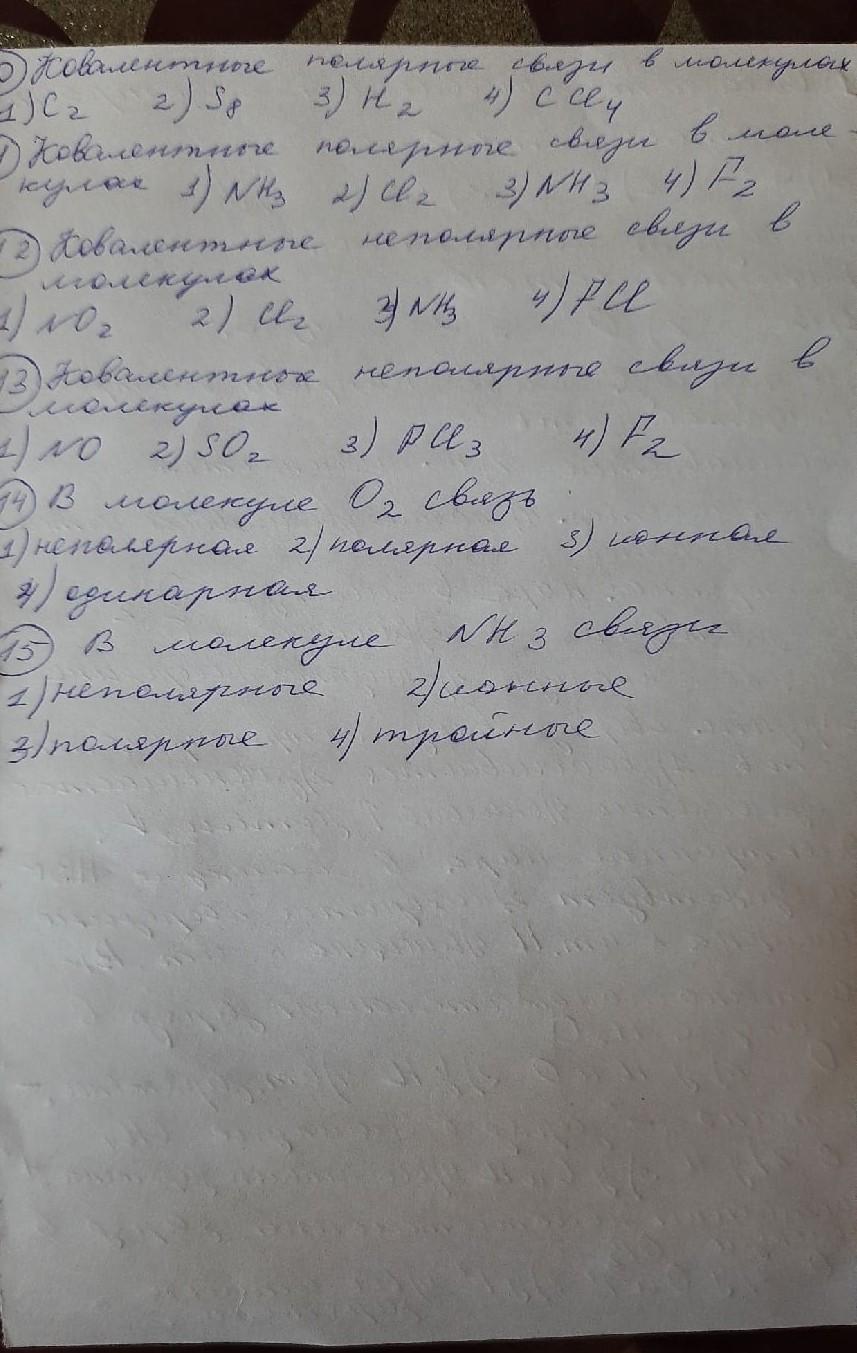 Ковалентные полярные связи в молекулах
1) C₂ 2) S₈ 3) H₂ 4) CCl₄
Ковалентные полярные связи в моле-
кулах 1) NH₃ 2) Cl₂ 3) NH₃ 4) F₂
12 Ковалентные неполярные связи в
молекулах
1) NO₂ 2) Cl₂ 3) NH₃ 4) FCl
13 Ковалентные неполярные связи в
молекулах
1) NO 2) SO₂ 3) PCl₃ 4) F₂
14 В молекуле O₂ связь
1) неполярная 2) полярная 3) ионная
4) одинарная
15 В молекуле NH₃ связи
1) неполярные 2) ионные
3) полярные 4) тройные